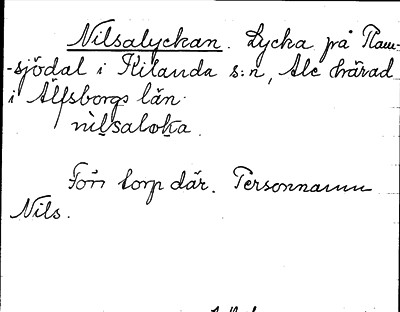 Nilsalyckan. Lycka på Ram-
-sjödal i Kilanda s:n, Ale härad
i Älfsborgs län.
nilsaloka.
Förr torp där. Personnamn
Nils.